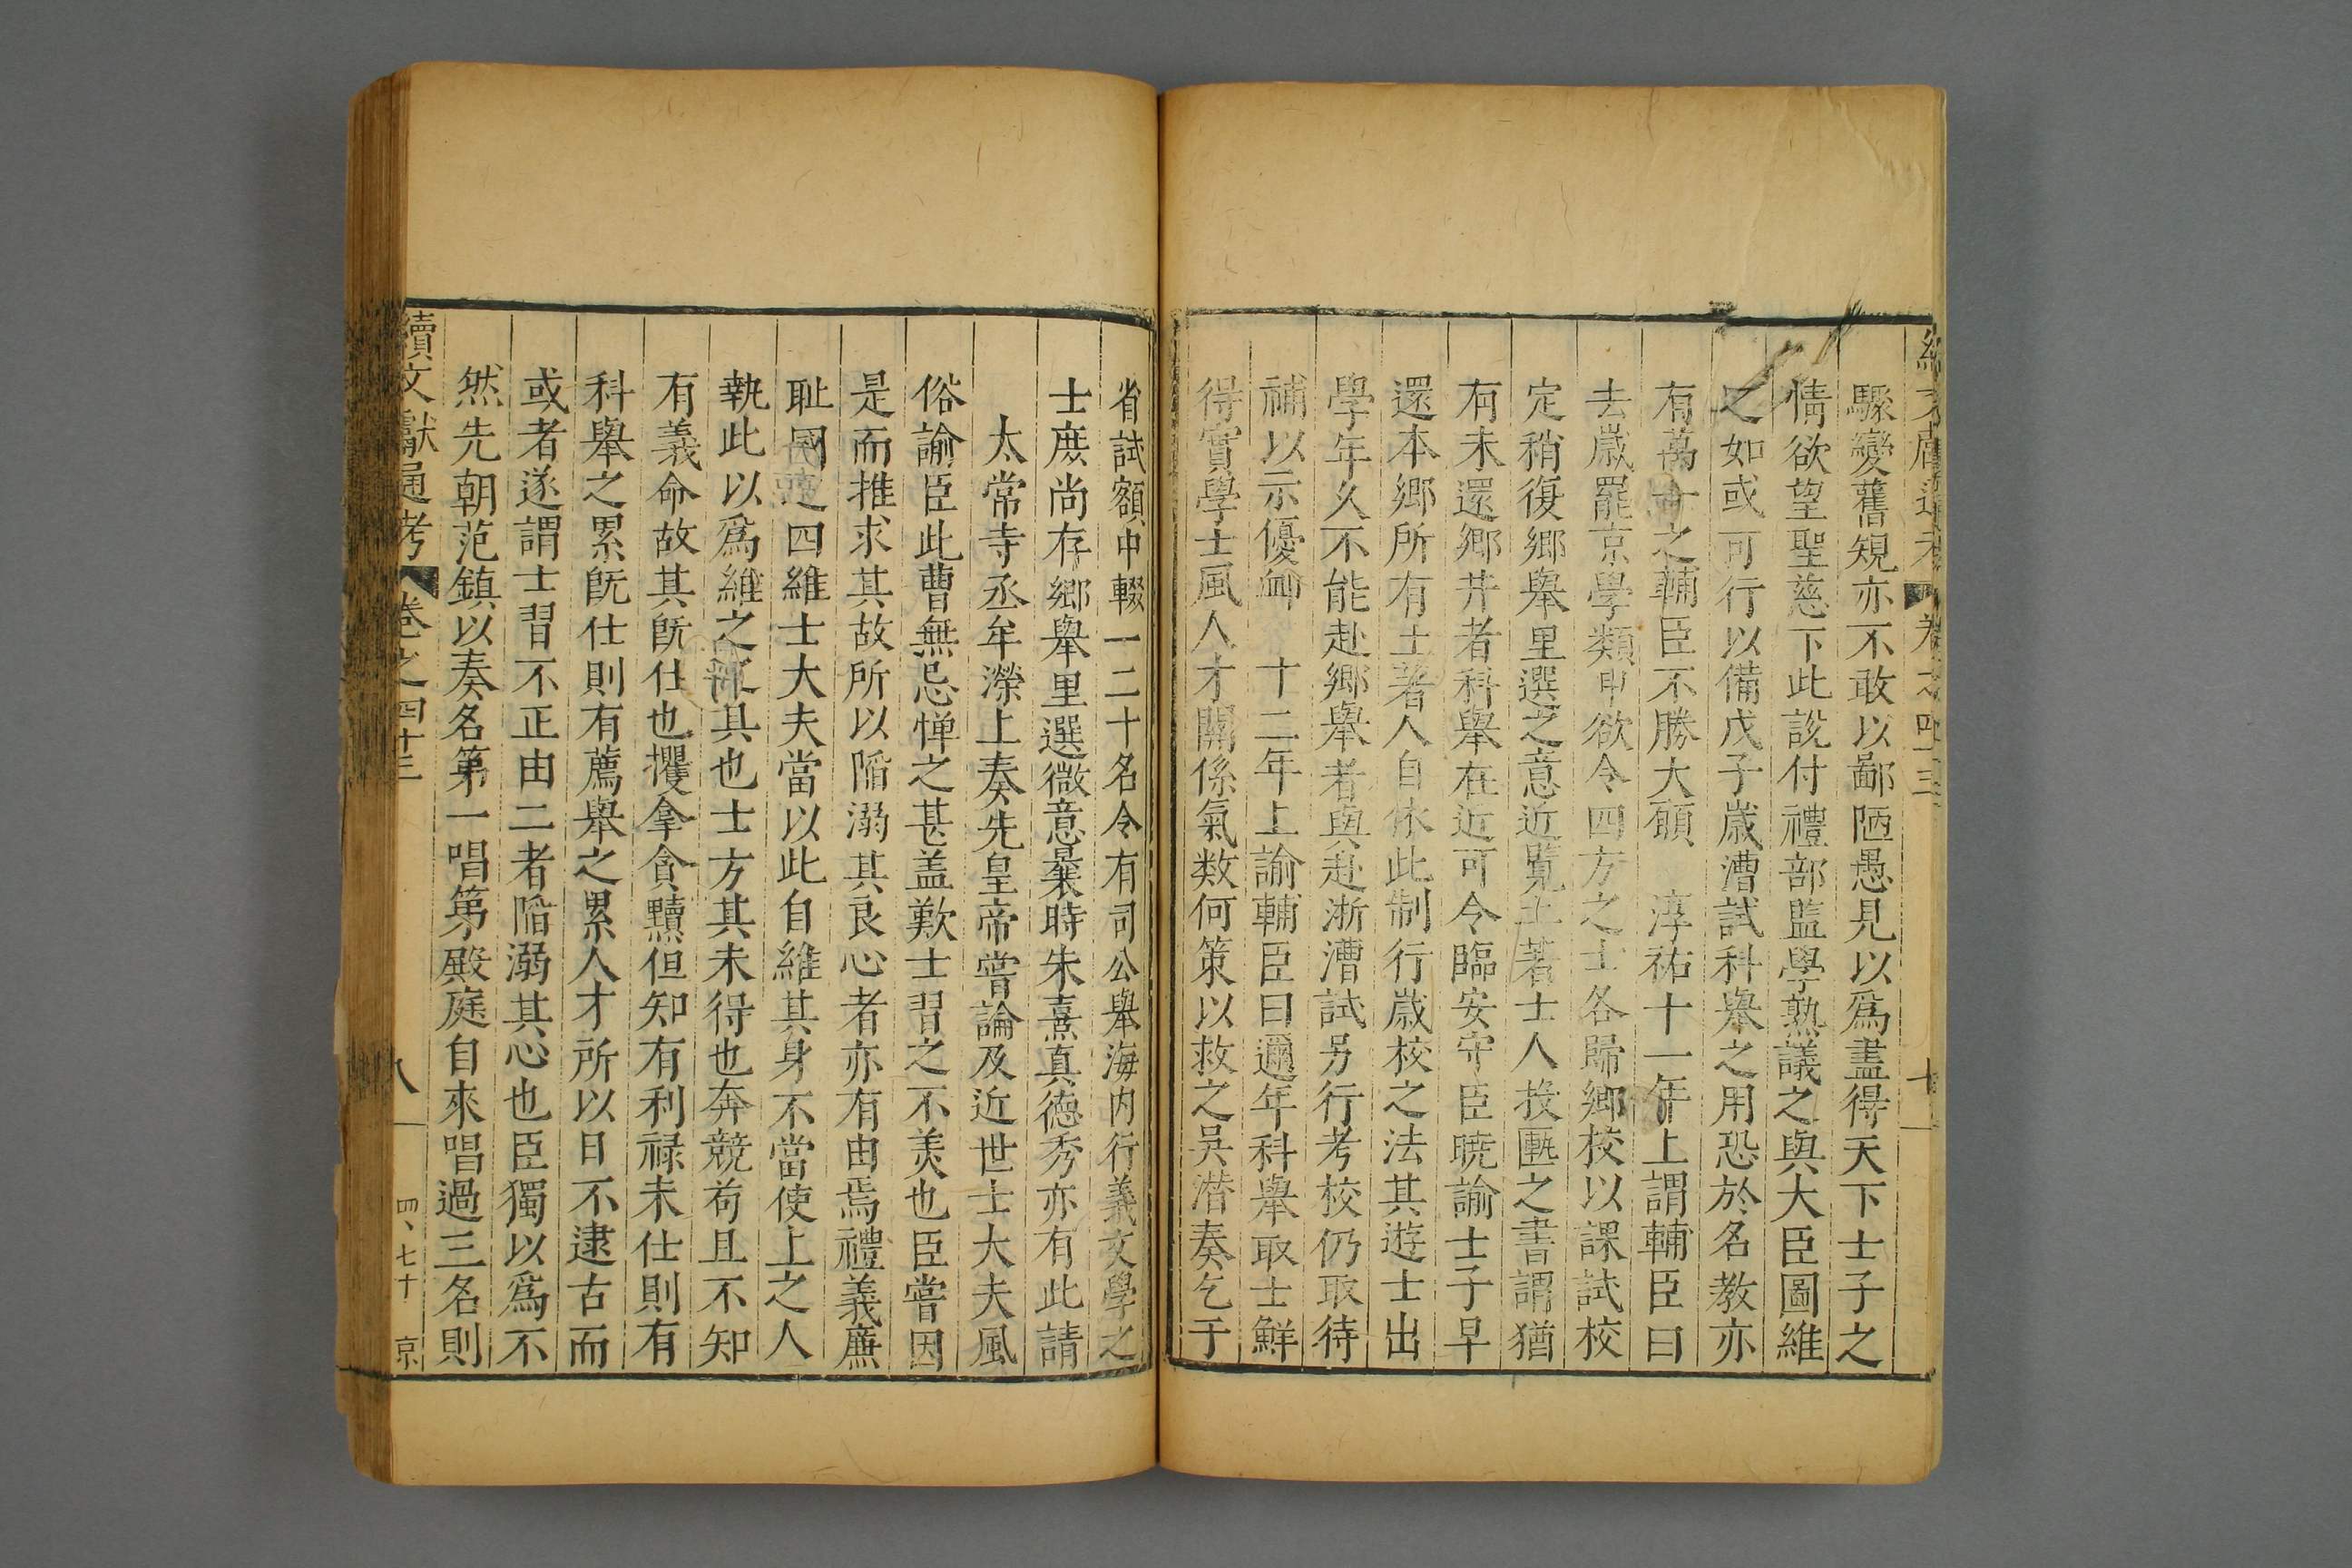 卷之四十三
驟變舊䂓亦不敢以鄙陋愚見以爲盡得天下士子之
情欲望聖慈下此說付禮部監學熟議之與大臣圖維
之如或可行以備戊子歲漕試科舉之用恐於名教亦
有萬一之輔臣不勝大願　淳祐十一年上謂輔臣曰
去歲罷京學類申欲令四方之士各歸鄉校以課試校
定稍復鄉舉里選之意近覽土著士人投匭之書謂猶
有未還鄉井者科舉在近可令臨安守臣曉諭士子早
還本鄉所有土著人自依此制行歲校之法其遊士出
學年久不能赴鄉舉者與赴浙漕試另行考校仍取待
補以示優卹　十二年上諭輔臣曰邇年科舉取士鮮
得實學士風人才關係氣数何策以救之吳潛奏乞于
省試額中輟一二十名令有司公舉海内行義文學之
士庶尚存鄉舉里選微意曩時朱熹真德秀亦有此請
太常寺丞牟濚上奏先皇帝嘗論及近世士大夫風
俗諭臣此曹無忌憚之甚盖歎士習之不美也臣嘗因
是而推求其故所以陷溺其良心者亦有由焉禮義廉
耻國四維士大夫當以此自維其身不當使上之人
執此以爲維之具也士方其未得也奔競苟且不知
有義命故其旣仕也攫拿貪黷但知有利禄未仕則有
科舉之累旣仕則有薦舉之累人才所以日不逮古而
或者遂謂士習不正由二者陷溺其心也臣獨以爲不
然先朝范鎮以奏名第一唱第殿庭自來唱過三名則
續文獻通考　卷之四十三　八　四、七十　京